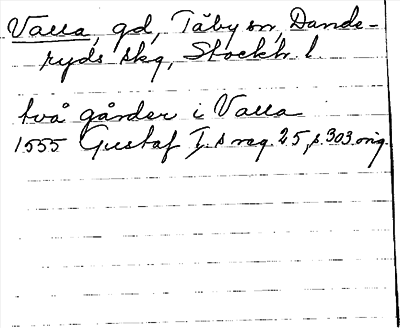 Valla, gd, Täby sn, Dande-
ryds skg, Stockh. l.
två gårder i Valla
1555 Gustaf I:s reg. 25, s. 303. orig.